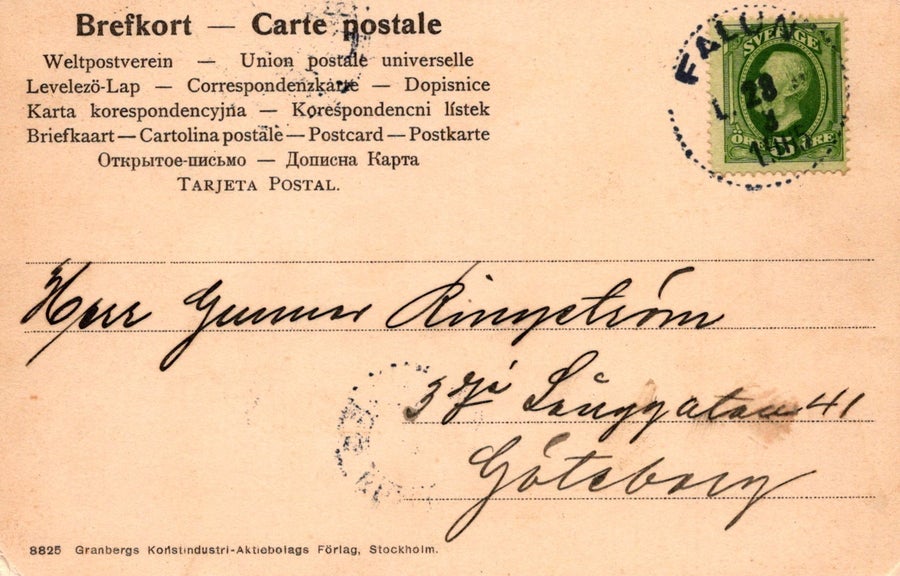 Brefkort — Carte postale
Weltpostverein — Union postale universelle
Levelező-Lap — Correspondenzkarte — Dopisnice
Karta korespondencyjna — Korešpondencni lístek
Briefkaart — Cartolina postale — Postcard — Postkarte
Открытое-письмо — Дописна Карта
TARJETA POSTAL.
FALUN
SVERIGE
28
5
ÖRE ÖRE
Herr Gunnar Ringström
Långgatan 41
Göteborg
8825 Granbergs Konstindustri-Aktiebolags Förlag, Stockholm.